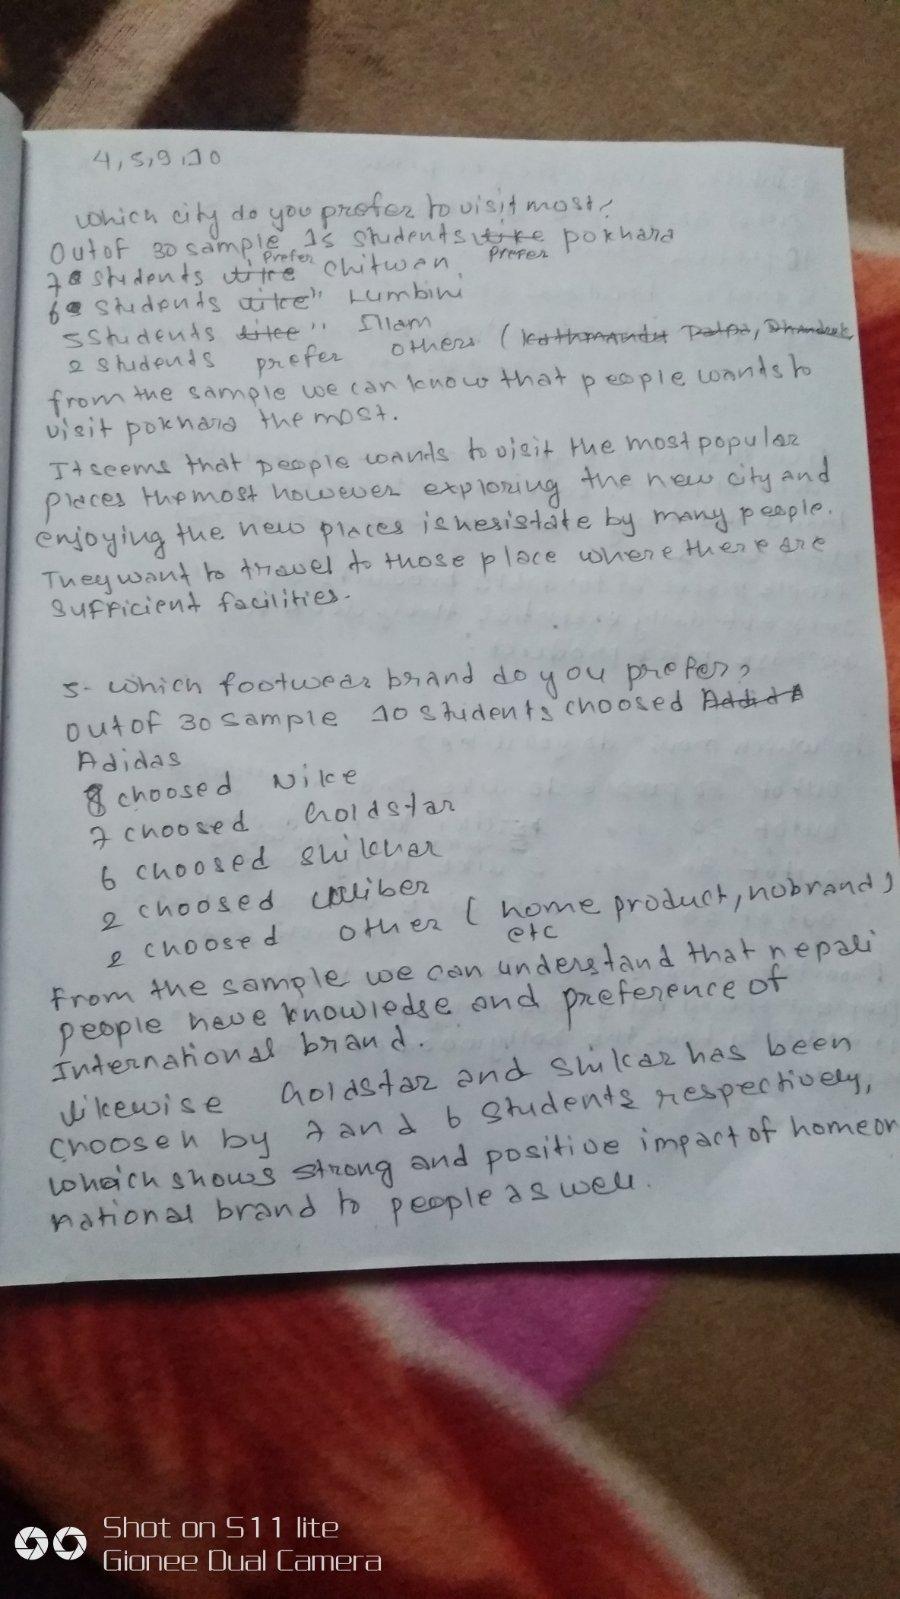 4,5,9,10
which city do you prefer to visit most?
Out of 30 sample 15 students like prefer pokhara
7 students like prefer chitwan
6 students like " Lumbini
5 students like " Illam
2 students prefer others (Kathmandu Palpa,
from the sample we can know that people wants to
visit pokhara the most.
It seems that people wands to visit the most popular
places the most however exploring the new city and
enjoying the new places is hesistate by many people.
They want to travel to those place where there are
sufficient facilities.
5- which footwear brand do you prefer?
out of 30 sample 10 students choosed
Adidas
8 choosed Nike
7 choosed Goldstar
6 choosed shikhar
2 choosed caliber
2 choosed other (home product, no brand)
etc
From the sample we can understand that nepali
people have knowledse and preference of
International brand.
likewise Goldstar and Shikar has been
choosen by 7 and 6 students respectively,
which shows strong and positive impact of home or
national brand to people as well.
Shot on S11 lite
Gionee Dual Camera